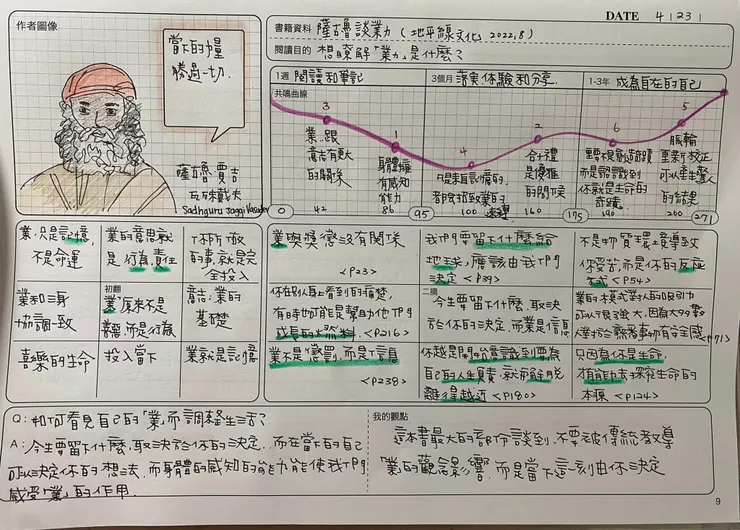 DATE 4 | 23 |
作者圖像
當下的力量
勝過一切.
薩古魯 賈吉
瓦殊戴夫
Sadhguru Jaggi Vasudev
書籍資料 薩古魯談業力 (地平線文化, 2022,8)
閱讀目的 想瞭解「業力」是什麼?
1週 閱讀和筆記
3個月 落實.体驗和分享.
1-3年 成為自在的自己
共鳴曲線
3
業.跟
意志有更大
的關係
1
身體擁
有感知
能力
4
凡是未記憶的.
2
合十禮
是優雅
的問候
6
你就是生命的
奇蹟.
5
脈輪
重新校正
的結果
0
42
86
95
100
160
195
190
200
271
業.只是記憶,
不是命運
業的意思就
是行為,責任
下你所做
的事,就是定
全投入
業和三身
協調一致
初翻
業原來不是
善惡,而是行為
意志:業的
基礎
喜樂的生命
投入當下
業就是記憶
業與獎懲沒有關係
<P23>
我們要留下什麼給
地球,應該由我們
決定 <P39>
不是物質環境導致
你受苦,而是你的反應
方式 <P54>
你在別人身上看到的痛楚,
有時也可能是幫助他們
成長的燃料. <P216>
二摘
今生要留下什麼,取決
於你的決定,而業是信息
業的模式對人的吸引力
可以很強大,因為大99%
人對於熟悉事物有安全感
<P71>
業不是懲罰,而是信息
<P238>
你越是開始意識到要為
自己的人生負責,就會解脫
離得越近 <P180>
只因為你是生命,
才有能力去探究生命的
本原 <P124>
Q: 如何看見自己的「業」而調整生活?
A: 今生要留下什麼,取決於你的決定..而在當下的自己
可以決定你的想法.而身體的感知的能力能使我們
感受「業」的作用.
我的觀點
這本書最大的部份談到,不要被傳統教導
「業」的觀念影響,而是當下這一刻由你決定
9